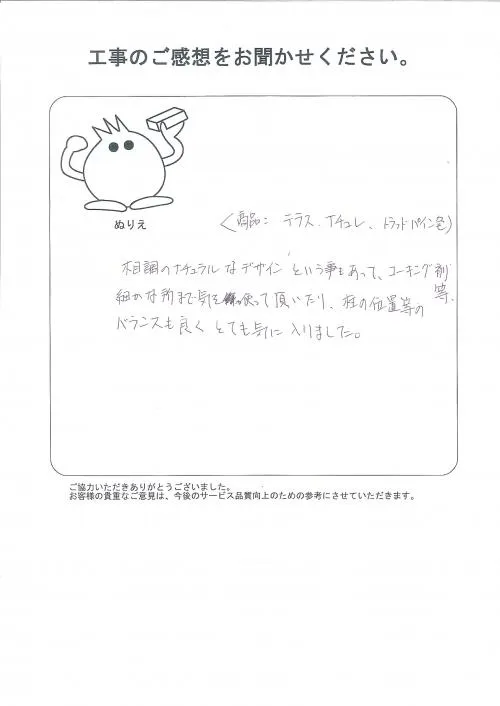 工事のご感想をお聞かせください。
ぬりえ
(商品: テラス.ナチュレ、トラッドパイン色)
木目調のナチュラルなデザインという事もあって、コーキング剤等.
細かな所まで気を使って頂いたり、柱の位置等の
バランスも良くとても気に入りました。
ご協力いただきありがとうございました。
お客様の貴重なご意見は、今後のサービス品質向上のための参考にさせていただきます。